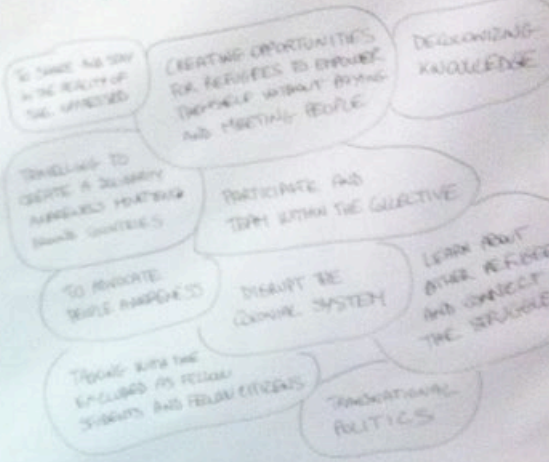 TO SHARE AND STAY
IN THE REALITY OF
THE OPPRESSED
CREATING OPPORTUNITIES
FOR REFUGEES TO EMPOWER
THEMSELF WITHOUT PAYING
AND MEETING PEOPLE
DECOLONIZING
KNOWLEDGE
TRAVELLING TO
CREATE A SOLIDARITY
AWARENESS
COUNTRIES
PARTICIPATE AND
TEAM WITHIN THE COLLECTIVE
TO ADVOCATE
PEOPLE AWARENESS
DISRUPT THE
COLONIAL SYSTEM
LEARN ABOUT
OTHER REFUGEE
AND CONNECT
THE STRUGGLE
TALKING WITH THE
EXCLUDED AS FELLOW
STUDENTS AND FELLOW CITIZENS
TRANSNATIONAL
POLITICS